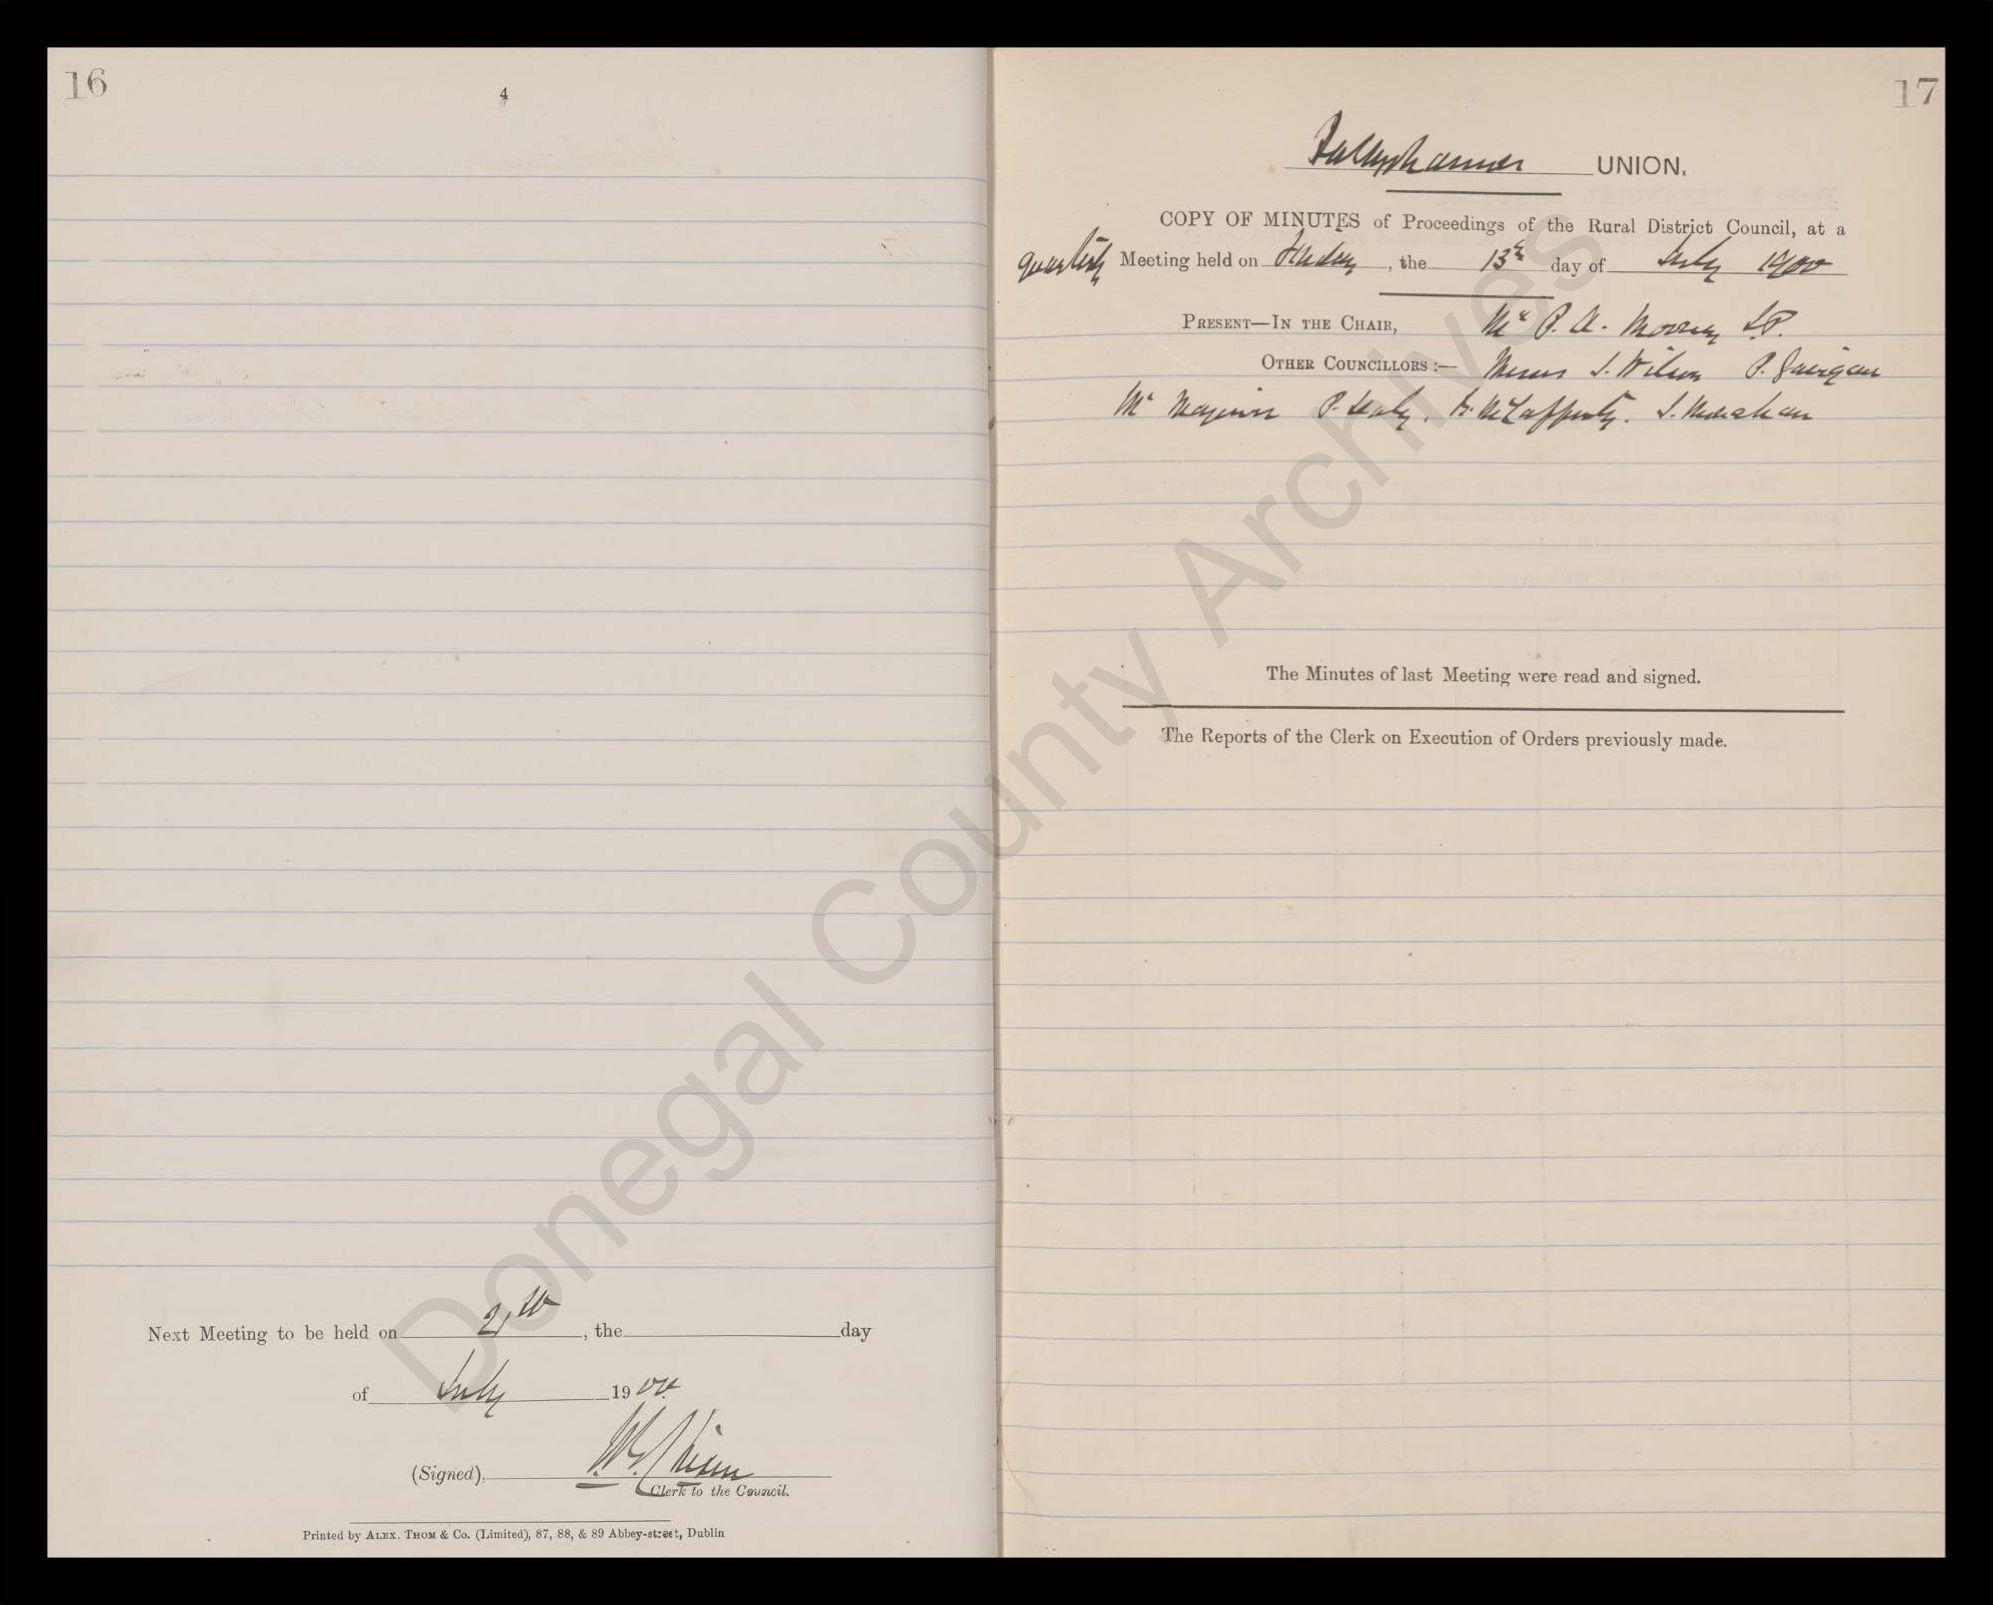 16
4
Next Meeting to be held on 21st, the day
of July 1900
(Signed),
Clerk to the Council.
Printed by ALEX. THOM & Co. (Limited), 87, 88, & 89 Abbey-street, Dublin
17
Ballyshannon UNION.
COPY OF MINUTES of Proceedings of the Rural District Council, at a
quarterly Meeting held on Friday, the 13th day of July 1900
PRESENT—IN THE CHAIR, Mr P. A. J.P.
OTHER COUNCILLORS:— Messrs J. Wilson P.
P. Healy. McCafferty. J. Meehan
The Minutes of last Meeting were read and signed.
The Reports of the Clerk on Execution of Orders previously made.
Donegal County Archives